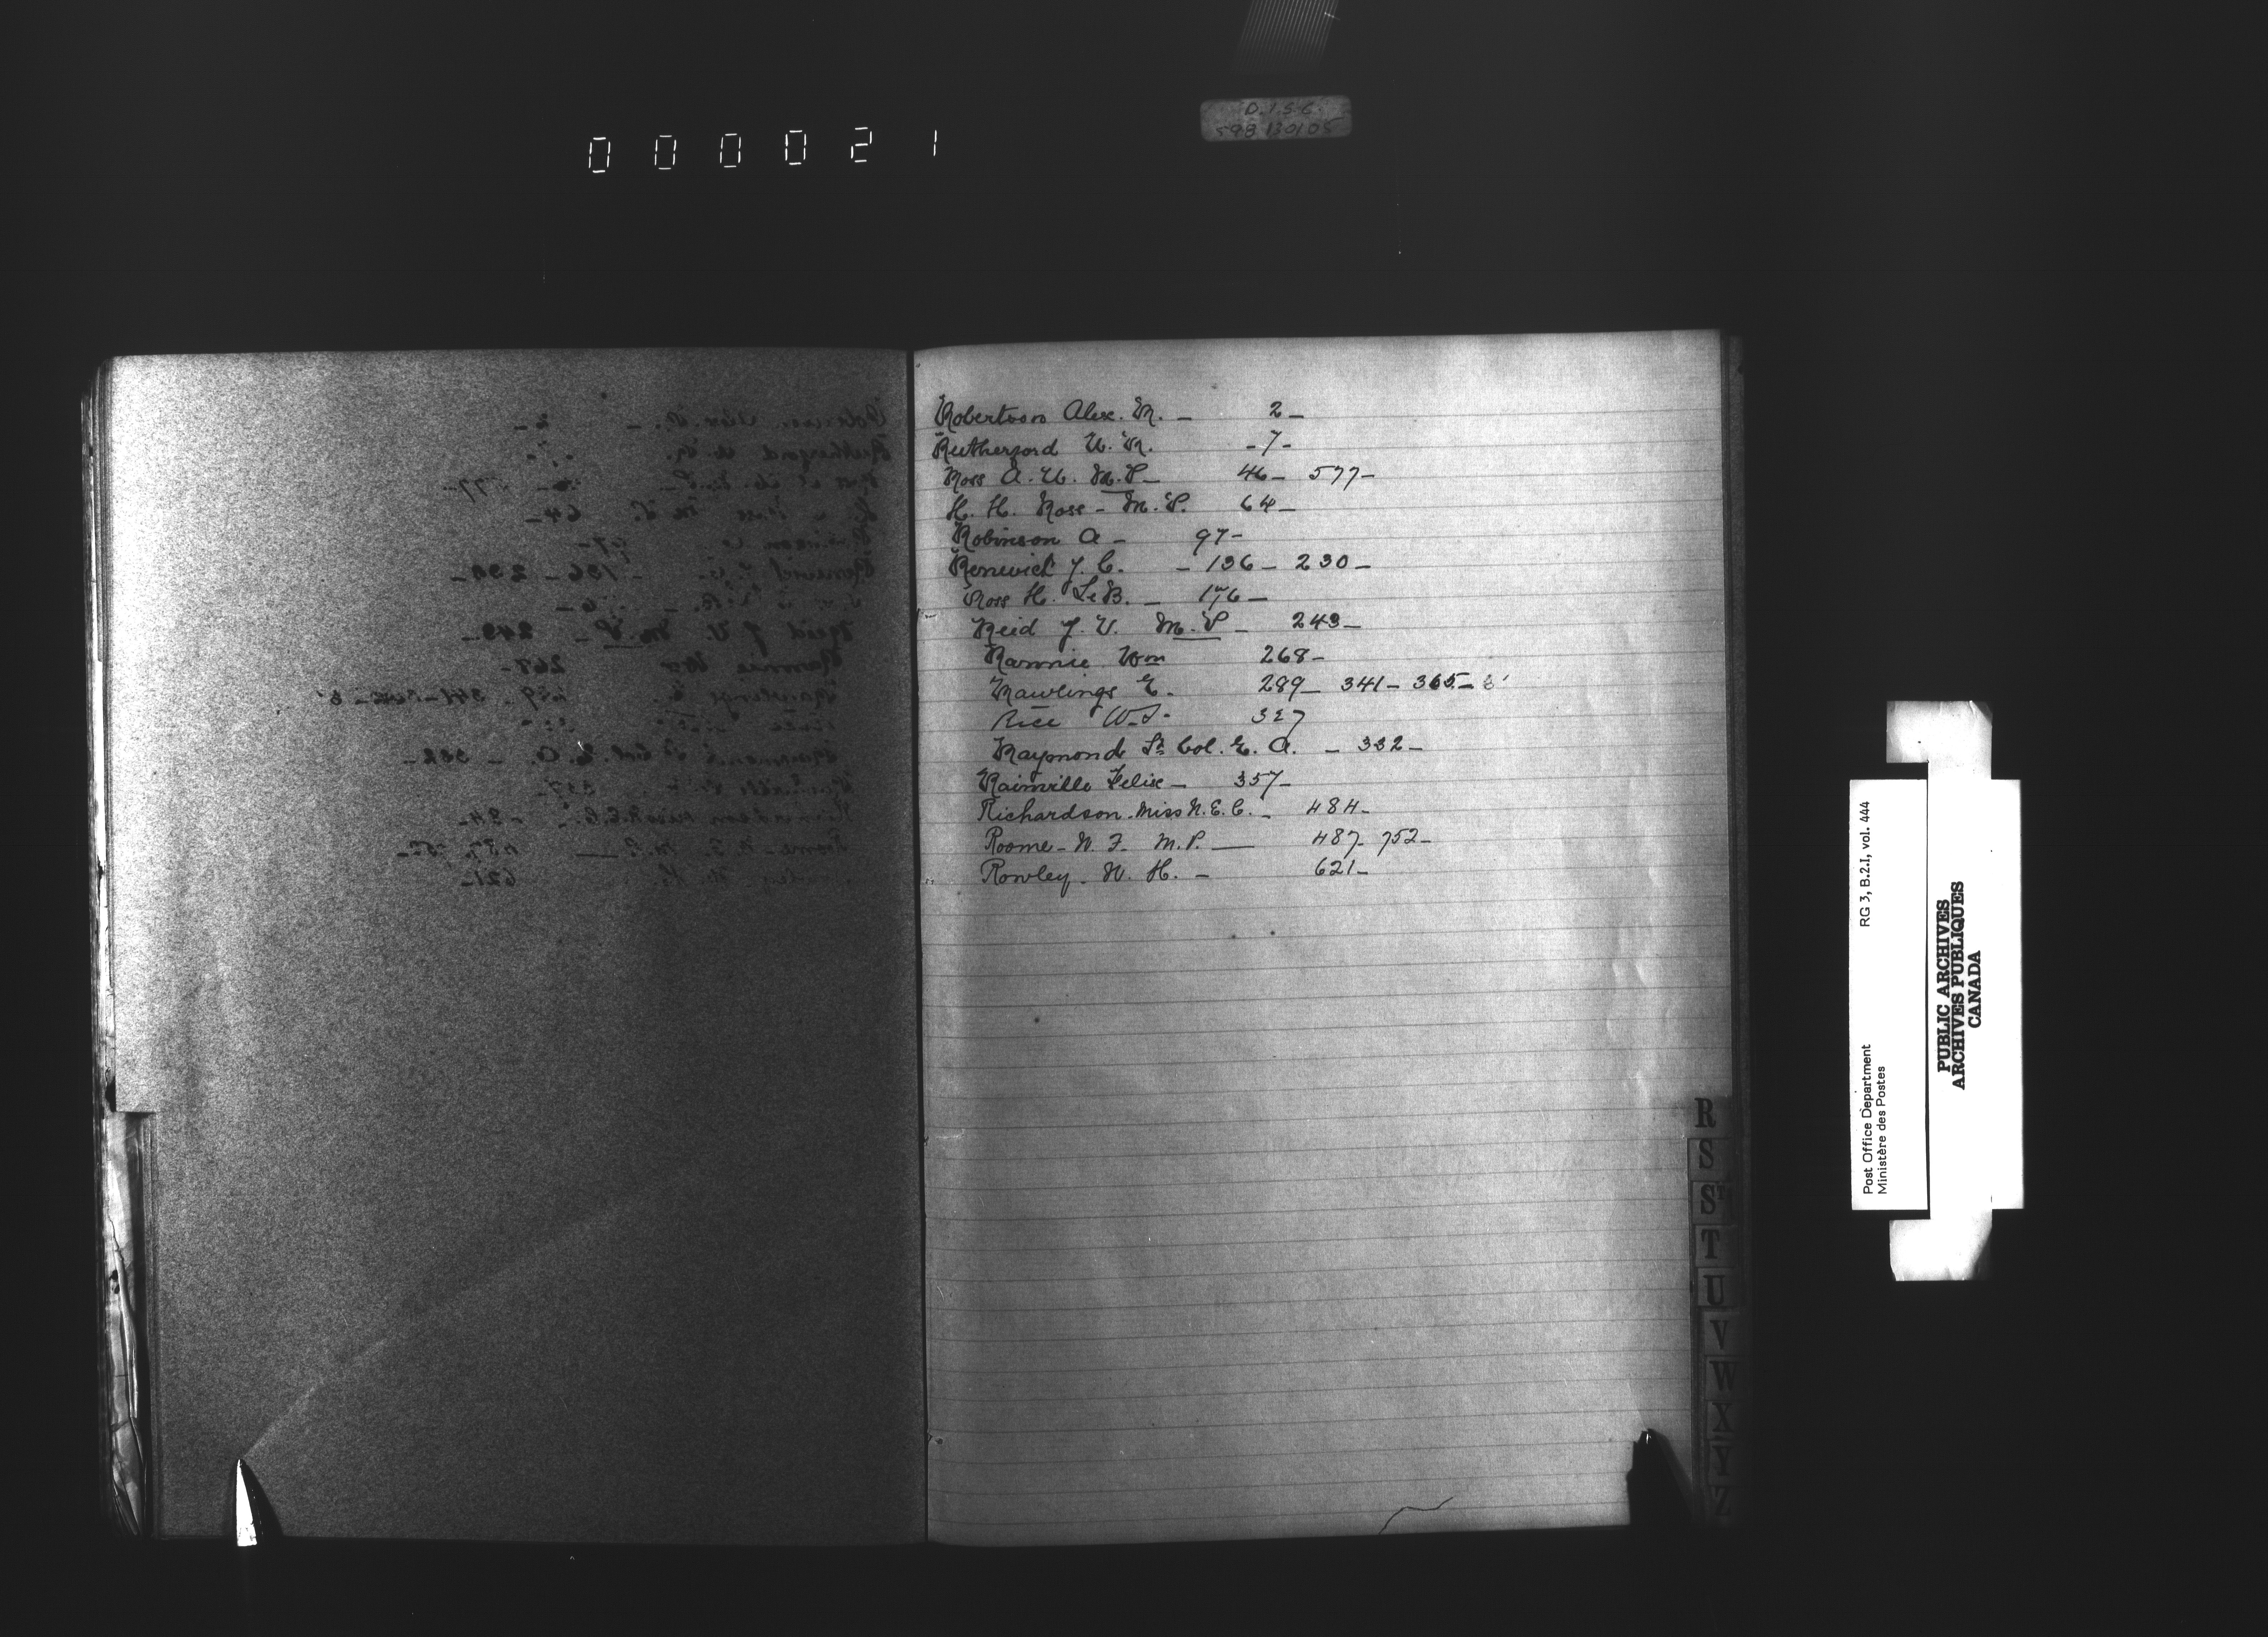 000021
D.I.S.C.
598 130105
Robertson Alex. M. - 2 -
Rutherford W. R. - 7 -
Ross A. W. M.P - 46 - 577 -
H. H. Ross - M.P. 64 -
Robinson A - 97 -
Renwick J. C. - 136 - 230 -
Ross H. Le B. - 176 -
Reid J. V. M.P - 243 -
Rannie Wm 268 -
Rawlings E. 289 - 341 - 365 -
Rice W. S. 327
Raymond Lt Col. E. A. - 332 -
Rainville Felix - 357 -
Richardson. Miss N. E. C. - 484 -
Roome - W. F. M.P. — 487 - 752 -
Rowley. W. H. - 621 -
R
S
ST
T
U
V
W
X
Y
Z
Post Office Department RG 3, B.2.I, vol. 444
Ministère des Postes
PUBLIC ARCHIVES
ARCHIVES PUBLIQUES
CANADA